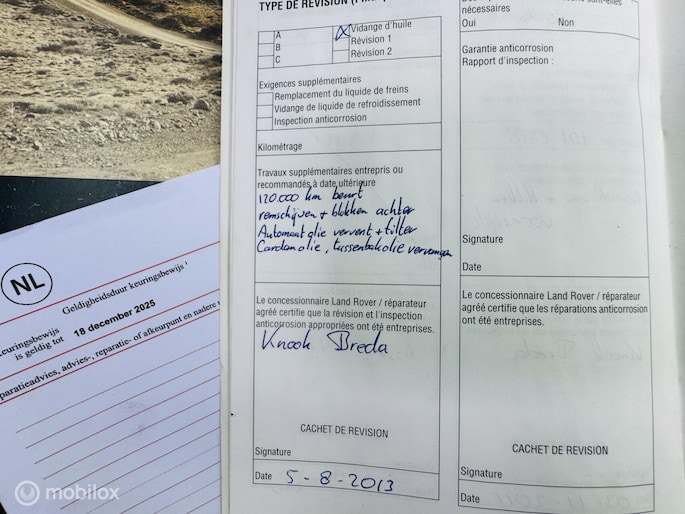 NL
Geldigheidsduur keuringsbewijs
keuringsbewijs
is geldig tot 18 december 2025
paratieadvies, advies-, reparatie- of afkeurpunt en nadere
TYPE DE REVISION
A
B
C
Vidange d'huile
Révision 1
Révision 2
Exigences supplémentaires
Remplacement du liquide de freins
Vidange de liquide de refroidissement
Inspection anticorrosion
Kilométrage
Travaux supplémentaires entrepris ou
recommandés à date ultérieure
120.000 km beurt
remschijven + blokken achter
Automaat olie ververst + filter
Cardanolie, tussenbakolie vervangen
Le concessionnaire Land Rover / réparateur
agréé certifie que la révision et l'inspection
anticorrosion appropriées ont été entreprises.
Knook Breda
CACHET DE REVISION
Signature
Date 5-8-2013
nécessaires
Oui Non
Garantie anticorrosion
Rapport d'inspection :
Signature
Date
Le concessionnaire Land Rover / réparateur
agréé certifie que les réparations anticorrosion
ont été entreprises.
CACHET DE REVISION
Signature
Date
mobilox